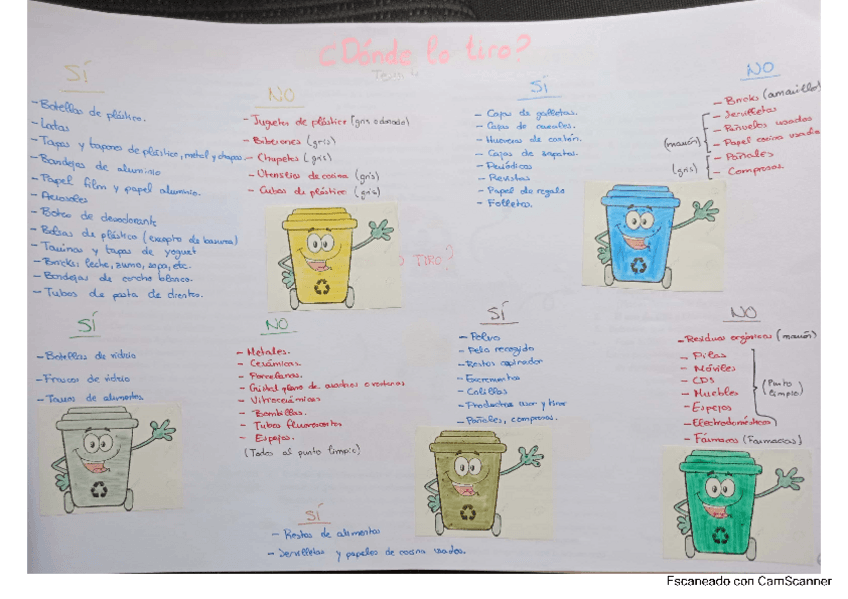 ¿Dónde lo tiro?
SÍ
- Botellas de plástico.
- Latas
- Tapas y tapones de plástico, metal y chapas.
- Bandejas de aluminio
- Papel film y papel aluminio.
- Aerosoles
- Botes de desodorante
- Bolsas de plástico (excepto de basura)
- Tarrinas y tapas de yogurt
- Bricks: leche, zumo, sopa, etc.
- Bandejas de corcho blanco.
- Tubos de pasta de dientes.
NO
- Juguetes de plástico (gris o donado)
- Biberones (gris)
- Chupetes (gris)
- Utensilios de cocina (gris)
- Cubos de plástico (gris)
SÍ
- Cajas de galletas.
- Cajas de cereales.
- Hueveras de cartón.
- Cajas de zapatos.
- Periódicos
- Revistas
- Papel de regalo
- Folletos.
NO
- Bricks (amarillo)
- Servilletas
- Pañuelos usados
(marrón)
- Papel cocina usado
- Pañales
(gris)
- Compresas
O TIRO?
SÍ
- Botellas de vidrio
- Frascos de vidrio
- Tarros de alimentos.
NO
- Metales.
- Cerámicas.
- Porcelanas.
- Cristal plano de cuadros o ventanas
- Vitrocerámicas
- Bombillas.
- Tubos fluorescentes
- Espejos.
(Todos al punto limpio)
SÍ
- Polvo
- Pelo recogido
- Restos aspirador
- Excrementos
- Colillas
- Productos usar y tirar
- Pañales, compresas.
NO
- Residuos orgánicos (marrón)
- Pilas
- Móviles
- CDS
(Punto limpio)
- Muebles
- Espejos
- Electrodomésticos
- Fármacos (Farmacias)
SÍ
- Restos de alimentos
- Servilletas y papeles de cocina usados.
Escaneado con CamScanner